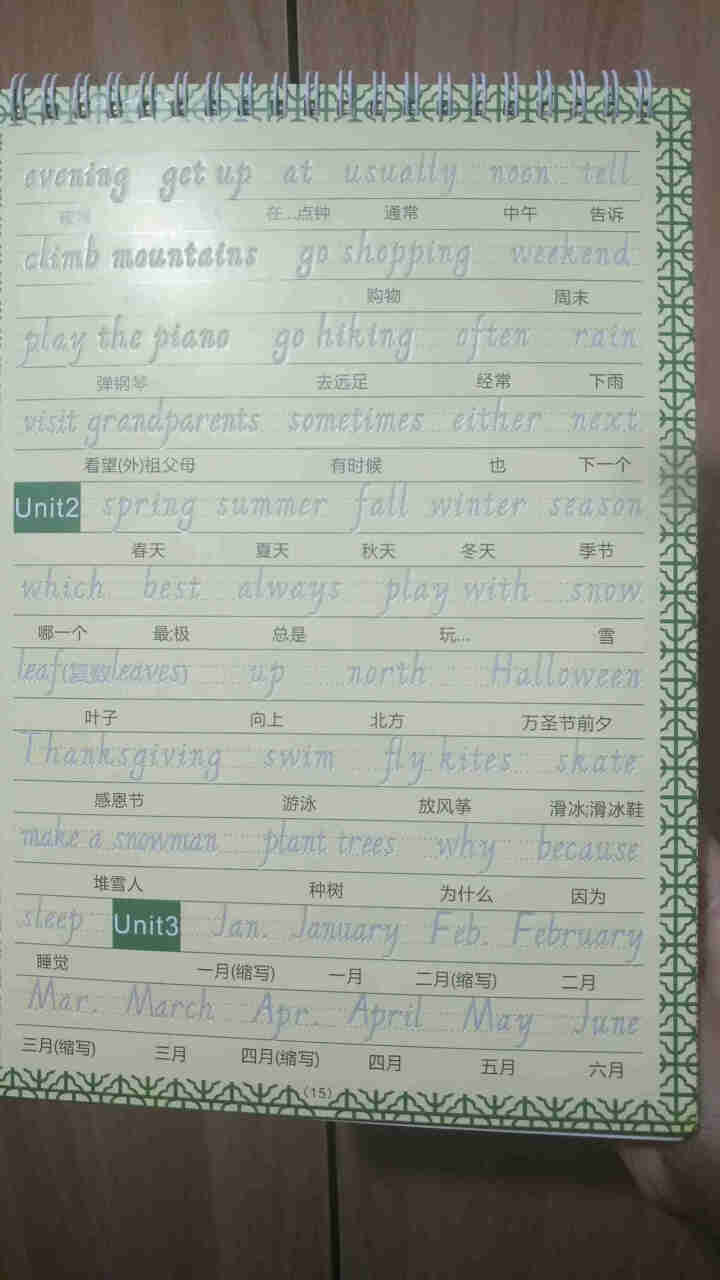 evening get up at usually noon tell
在…点钟 通常 中午 告诉
climb mountains go shopping weekend
购物 周末
play the piano go hiking often rain
弹钢琴 去远足 经常 下雨
visit grandparents sometimes either next
看望(外)祖父母 有时候 也 下一个
Unit2 spring summer fall winter season
春天 夏天 秋天 冬天 季节
which best always play with snow
哪一个 最;极 总是 玩… 雪
leaf(复数leaves) up north Halloween
叶子 向上 北方 万圣节前夕
Thanksgiving swim fly kites skate
感恩节 游泳 放风筝 滑冰;滑冰鞋
make a snowman plant trees why because
堆雪人 种树 为什么 因为
sleep Unit3 Jan. January Feb. February
睡觉 一月(缩写) 一月 二月(缩写) 二月
Mar. March Apr. April May June
三月(缩写) 三月 四月(缩写) 四月 五月 六月
(15)